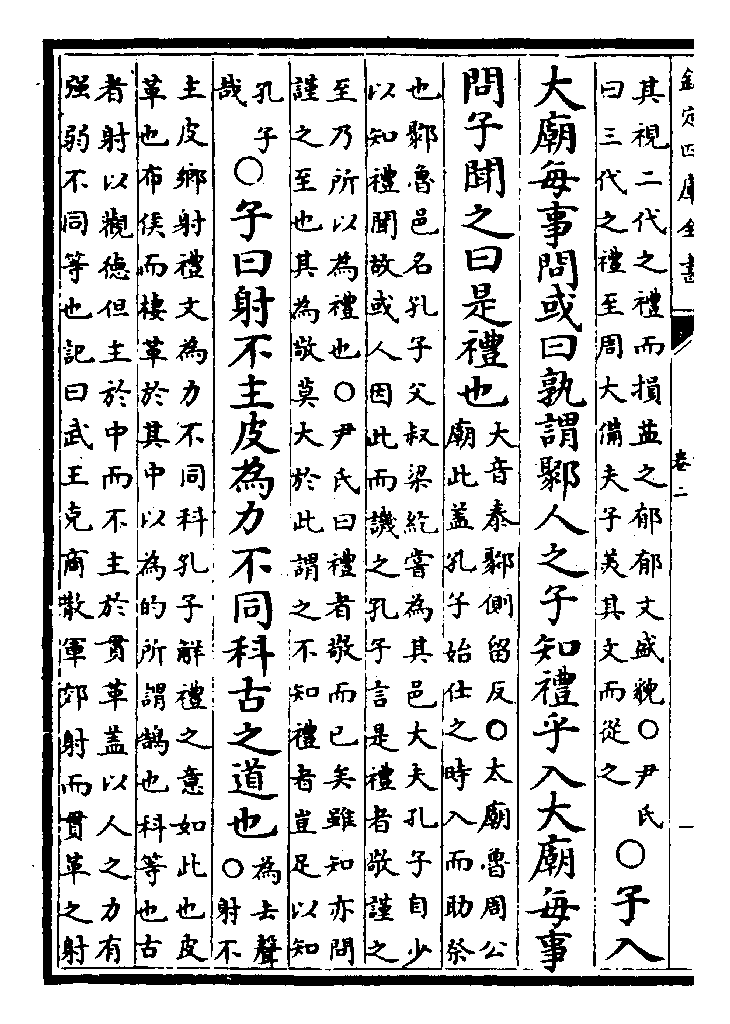 欽定四庫全書
卷二
一
其視二代之禮而損益之郁郁文盛貌○尹氏
曰三代之禮至周大備夫子美其文而從之
○子入
大廟每事問或曰孰謂鄹人之子知禮乎入大廟每事
問子聞之曰是禮也
大音泰鄹側留反○太廟魯周公
廟此蓋孔子始仕之時入而助祭
也鄹魯邑名孔子父叔梁紇嘗為其邑大夫孔子自少
以知禮聞故或人因此而譏之孔子言是禮者敬謹之
至乃所以為禮也○尹氏曰禮者敬而已矣雖知亦問
謹之至也其為敬莫大於此謂之不知禮者豈足以知
孔子
哉
○子曰射不主皮為力不同科古之道也
為去聲
○射不
主皮鄉射禮文為力不同科孔子解禮之意如此也皮
革也布侯而棲革於其中以為的所謂鵠也科等也古
者射以觀德但主於中而不主於貫革蓋以人之力有
强弱不同等也記曰武王克商散軍郊射而貫革之射